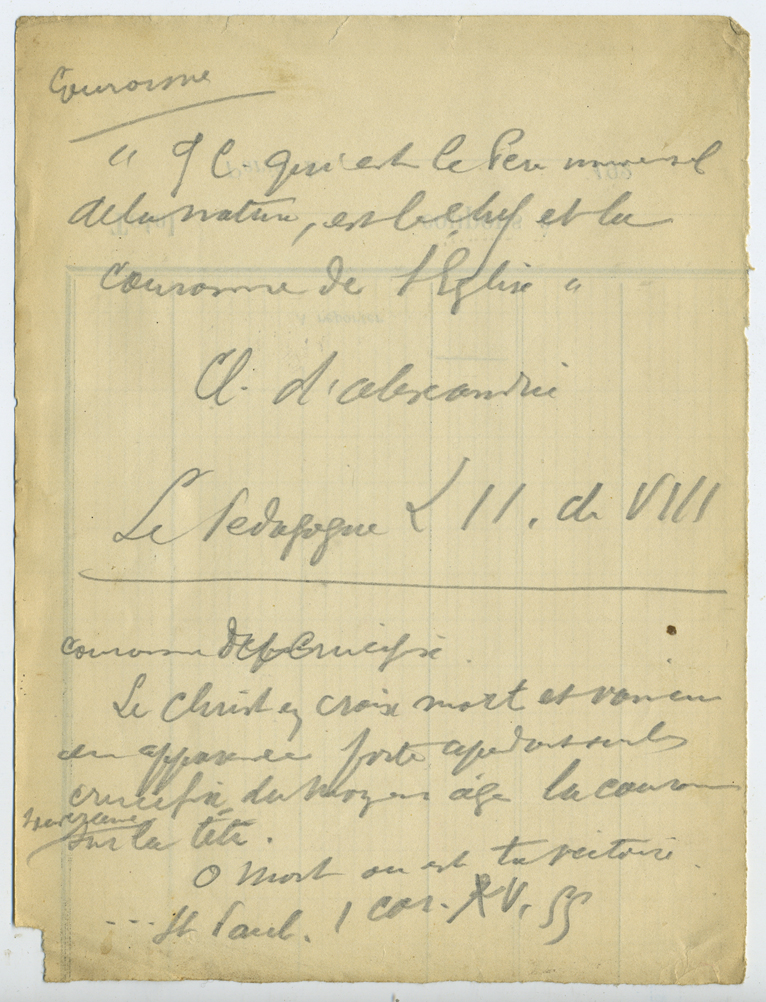 Couronne
" J C. qui est le Père universel
de la nature, est le chef et la
couronne de l'Eglise "
Cl. d'Alexandrie
Le Pedagogue L II. ch VIII
couronne crucifix
Le Christ en croix mort et vaincu
en apparence porte cependant sur les
crucifix du moyen âge la couronne
sur la tête.
O Mort ou est ta victoire.
... St Paul. 1 cor. XV, 55